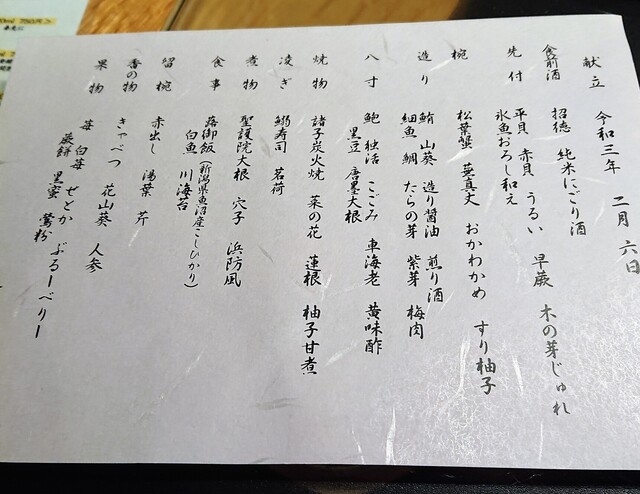 献立 令和三年 二月 六日
食前酒 招徳 純米にごり酒
先付 平貝 赤貝 うるい 早蕨 木の芽じゅれ
氷魚おろし和え
椀 松葉蟹 蕪真丈 おかわかめ すり柚子
造り 鮪 山葵 造り醤油 煎り酒
細魚 鯛 たらの芽 紫芽 梅肉
八寸 鮑 独活 こごみ 車海老 黄味酢
黒豆 唐墨大根
焼物 諸子炭火焼 菜の花 蓮根 柚子甘煮
凌ぎ 鰯寿司 茗荷
煮物 聖護院大根 穴子 浜防風
食事 蕗御飯(新潟県魚沼産こしひかり)
白魚 川海苔
留椀 赤出し 湯葉 芹
香の物 きゃべつ 花山葵 人参
果物 苺 白苺 せとか ぶるーべりー
蕨餅 黒蜜 鶯粉